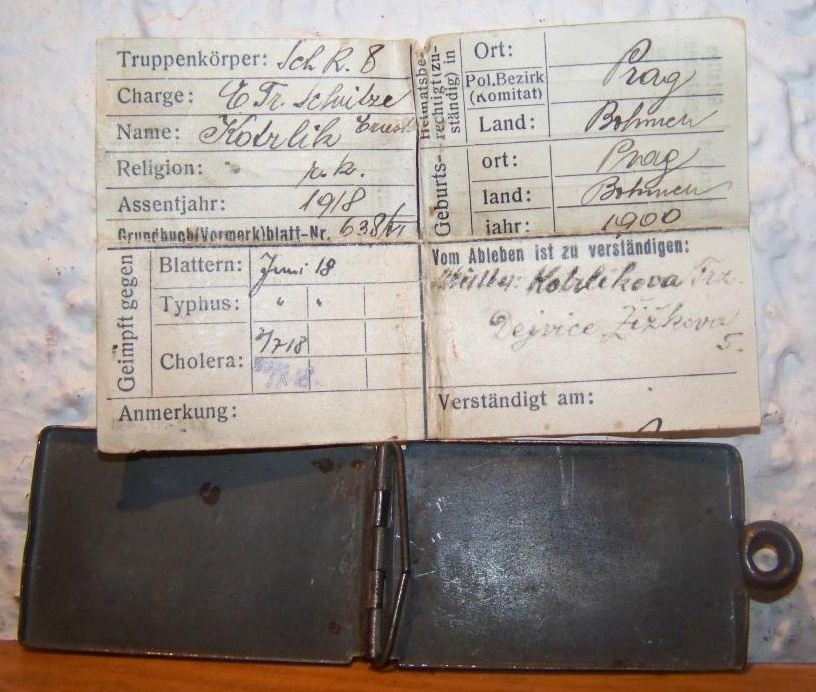 Truppenkörper: Sch R. 8
Charge: E Tr. Schütze
Name: Kotrlik Ernst
Religion: r. k.
Assentjahr: 1918
Grundbuch(Vormerk)blatt-Nr. 638/VI
Heimatsbe-
rechtigt (zu-
ständig) in
Ort:
Pol.Bezirk
(Komitat)
Prag
Land: Böhmen
Geburts-
ort: Prag
land: Böhmen
jahr: 1900
Geimpft gegen
Blattern: Juni 18
Typhus: " "
Cholera: 2/7 18
Anmerkung:
Vom Ableben ist zu verständigen:
Mutter: Kotrlikova
Dejvice Žižkova
5.
Verständigt am: